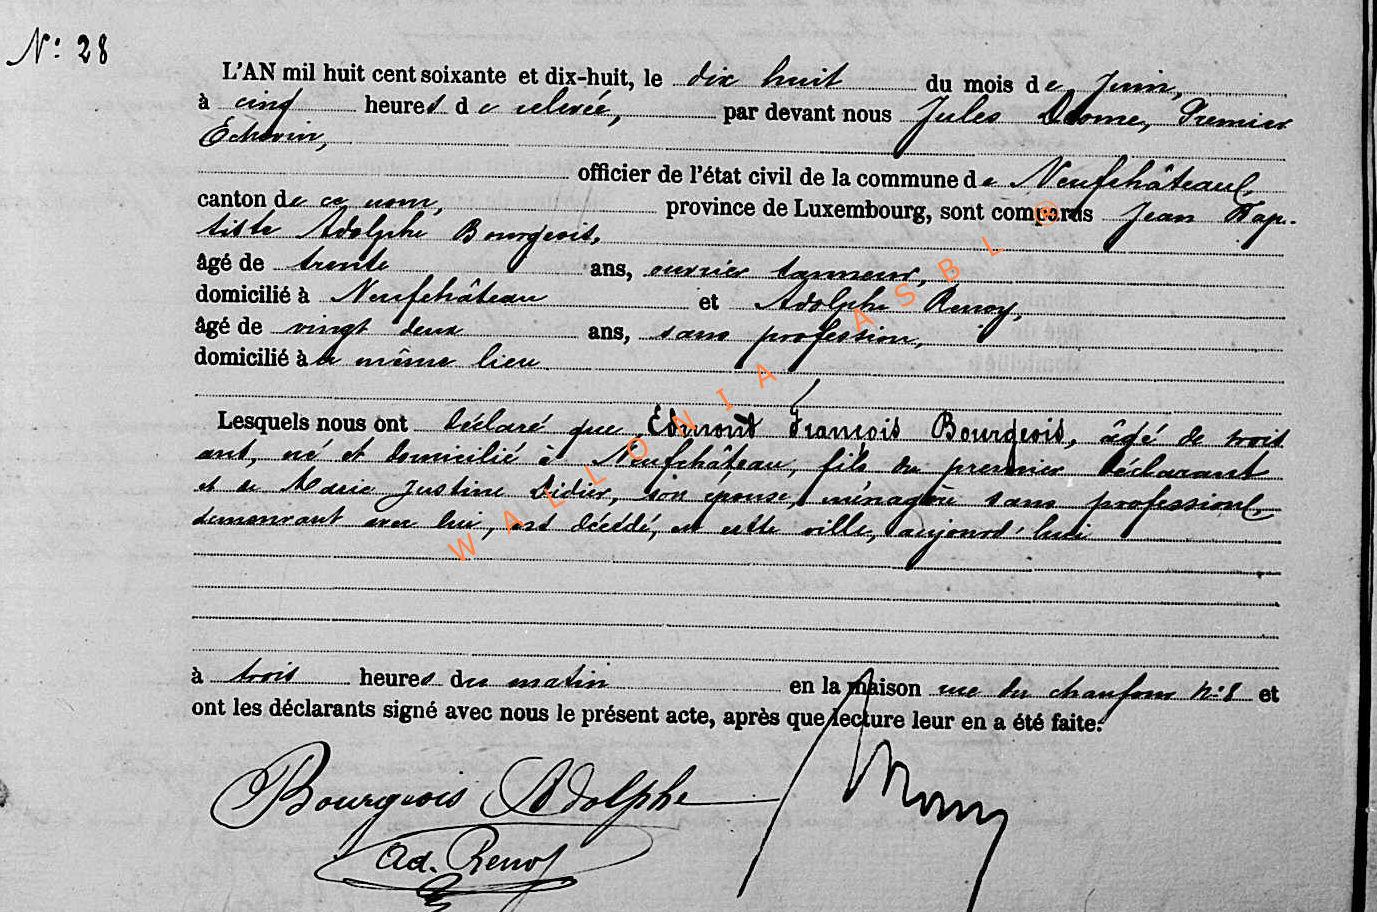 N: 28
L'AN mil huit cent soixante et dix-huit, le dix huit du mois de Juin,
à cinq heures de relevée, par devant nous Jules Drome, Premier
Echevin,
officier de l'état civil de la commune de Neufchâteau,
canton de ce nom, province de Luxembourg, sont comparus Jean Bap-
tiste Adolphe Bourgeois,
âgé de trente ans, ouvrier tanneur,
domicilié à Neufchâteau et Adolphe Renoy,
âgé de vingt deux ans, sans profession,
domicilié à même lieu
Lesquels nous ont déclaré que Edmont François Bourgeois, âgé de trois
ans, né et domicilié à Neufchâteau, fils du premier déclarant
et de Marie Justine Didier, son épouse, ménagère sans profession,
demeurant avec lui, est décédé, en cette ville, aujourd'hui
à trois heures du matin en la maison rue du chaufour n:8 et
ont les déclarants signé avec nous le présent acte, après que lecture leur en a été faite.
Bourgeois Adolphe
Ad. Renoy
WALLONIA ASBL ®